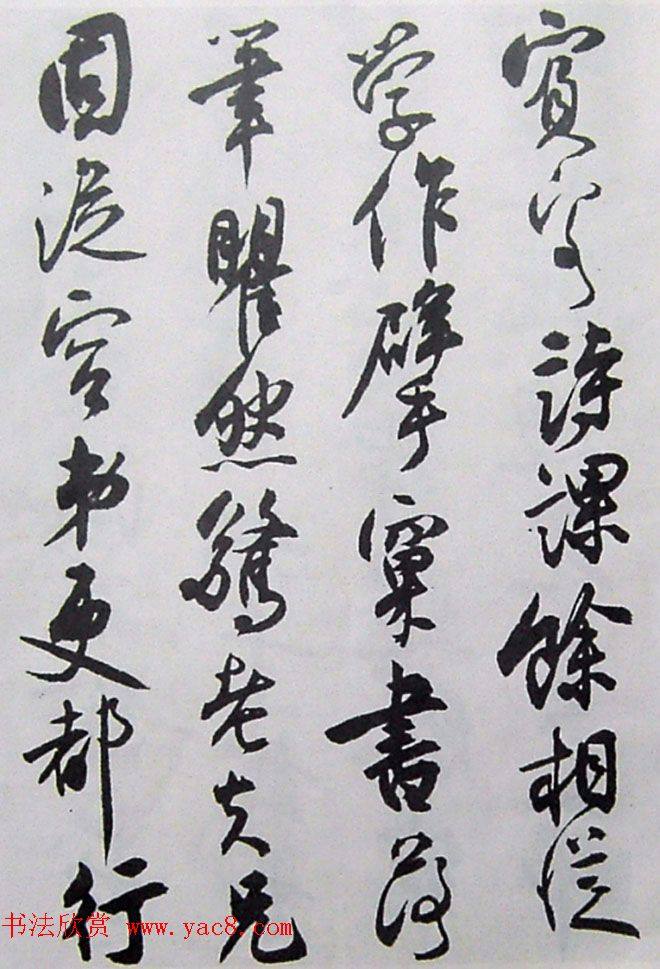 賓詩課餘相從
學作擘窠書落
筆瞿然驚老夫兄
固從容弟更都行
书法欣赏 www.yac8.com